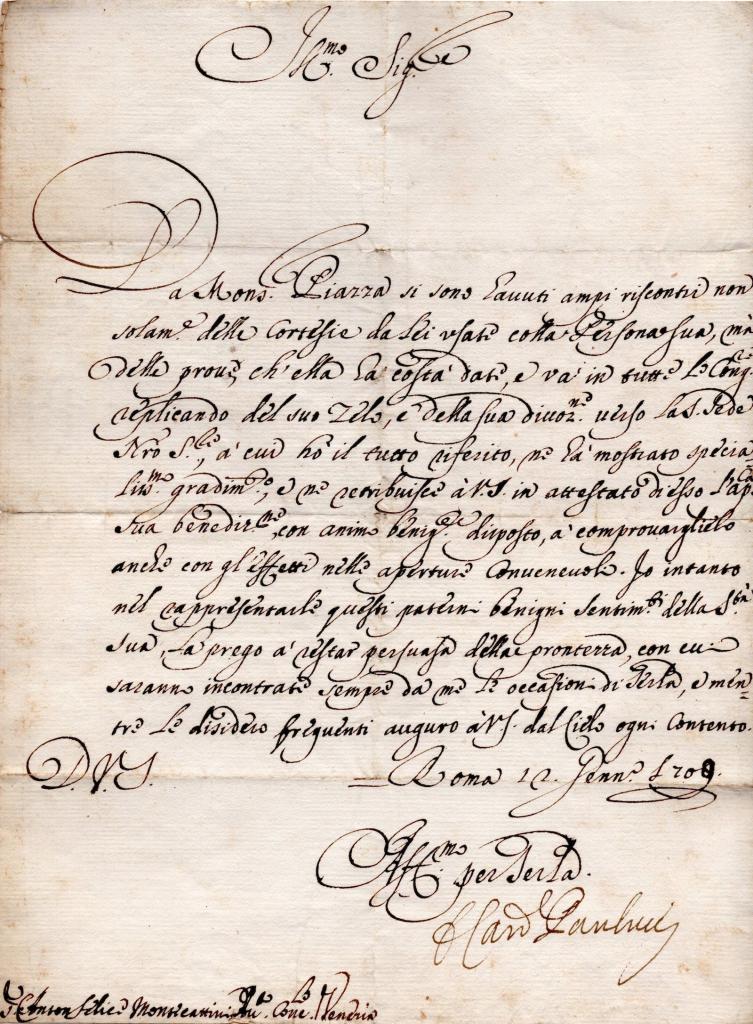 Ill.mo Sig.re
Da Mons. Piazza si sono havuti ampi riscontri non
solam.e delle Cortesie da lei usate colla Persona sua, mà
delle prove, ch'ella hà costà date, e và in tutte le Cong.re
replicando del suo Zelo, e della sua divoz.ne verso la S. Sede
Nrõ S.re, à cui hò il tutto riferito, ne hà mostrato specia-
liss.mo gradim.o, e ne retribuisce à V.S. in attestato di esso l'Ap.ca
sua bened.ne, con animo benig.e disposto, a comprovarglielo
anche con gl'effetti nelle aperture convenevoli. Io intanto
nel rappresentarle questi paterni benigni sentim.ti della S.tà
sua, la prego à restar persuasa della prontezza, con cui
saranno incontrate sempre da me le occasioni di servirla, e men-
tre le desidero frequenti auguro à V.S. dal Cielo ogni contento.
D.V.S. Roma 12. Genn.o 1709.
Aff.mo per Ser.la
Il Card. Paulucci
Anton felice Montecattini Conv. Vendria